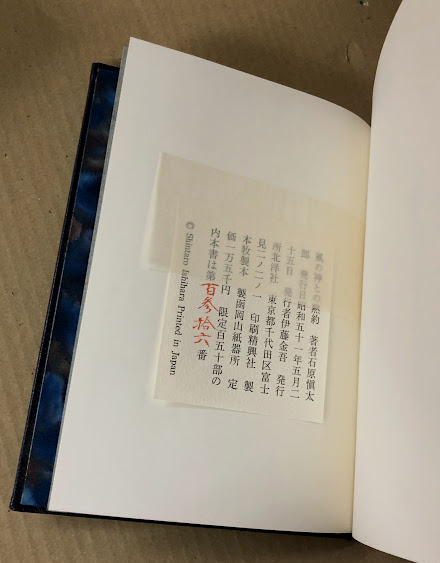 風の神との黙約　著者石原慎太
郎　発行日昭和五十一年五月二
十五日　発行者伊藤金吾　発行
所北洋社　東京都千代田区富士
見二ノ二ノ一　印刷精興社　製
本牧製本　製函岡山紙器所　定
価一万五千円　限定百五十部の
内本書は第百参拾六番
© Shintaro Ishihara Printed in Japan